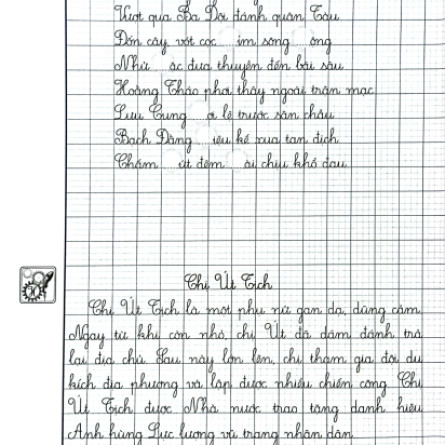 Vượt qua Ba Dội đánh quân Tàu
Đốn cây vót cọc im sông ông
Nhử ặc đưa thuyền đến bãi sâu
Hoằng Tháo phơi thây ngoài trận mạc
Lưu Cung ơi lê trước sân chầu
Bạch Đằng iêu kế xua tan địch
Chiếm ứt đêm ài chịu khổ đau
Chị Út Tịch
Chị Út Tịch là một phụ nữ gan dạ, dũng cảm.
Ngay từ khi còn nhỏ, chị Út đã dám đánh trả
lại địa chủ. Sau này lớn lên, chị tham gia đội du
kích địa phương và lập được nhiều chiến công. Chị
Út Tịch được Nhà nước trao tặng danh hiệu
Anh hùng Lực lượng vũ trang nhân dân.